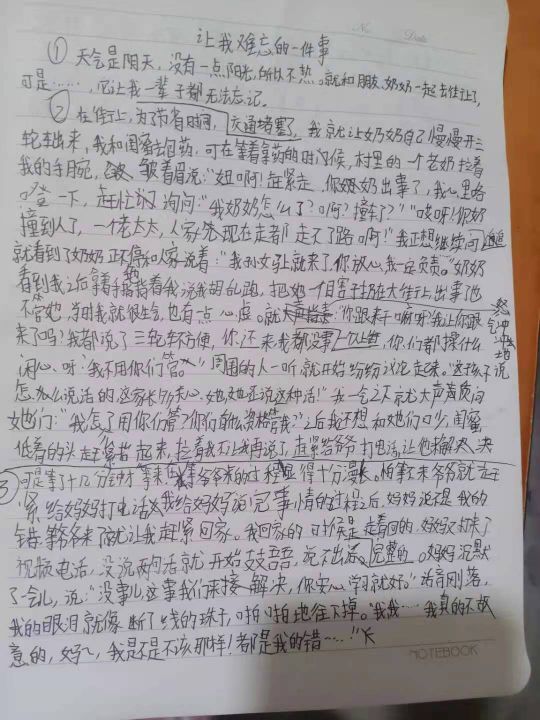 No
Date
让我难忘的一件事
① 天气是阴天，没有一点阳光，所以不热。就和朋友、奶奶一起去街上了，
可是……，它让我一辈子都无法忘记。
② 在街上，为了节省时间，交通堵塞了，我就让奶奶自己慢慢开三
轮车出来，我和闺蜜去包药，可在等着拿药的时间候，村里的一个老奶拉着
我的手用腕，皱着眉说："妞啊！赶紧走，你奶奶出事了，我心里咯
噔一下，赶忙询问："我奶奶怎么了？啊？撞车了？""哎呀！你奶
撞到人了，一个老太太，人家先现在走都走不了路啊！"我正想继续问
就看到了奶奶正不停和人家说着："我孙女让就来了，你放心，我一定负责。"奶奶
看到我之后拿着手指着我说我胡乱跑，把她一个自己扔在大街上出事也
不管她，当时我就很生气，也有点心虚。就"你跟来干嘛呀？我让你跟
怒气冲冲地
来了吗？我都说了三轮车不方便，你还来我都没事，你们都操什么
闲心呀！我不用你们管"周围的人一听，就开始纷纷议论起来。"这孩子说
怎么这么说话的这家长多关心她，她还说这种话！"我一急之下就大声质问
她们："我怎了用你们管了你们有什么资格管我？"之后我还想和她们吵，闺蜜
低着的头赶紧抬起来，拉着我不让我再说了，赶紧给爷爷打电话，让他来解决
③ 可是等了十几分钟才等来，等爷爷来的过程显得十分漫长。和等了来爷爷就赶
紧给妈妈打电话，我给妈妈说完事情的过程之后，妈妈说不是我的
错，等爷爷来了就让我赶紧回家。我回家的时候是走着回的，妈妈又打来了
视频电话，没说两句话就开始支支吾吾，说不出完整的。妈妈沉默
了一会儿，说："没事儿，这事我们来接解决，你安心学习就好。"话音刚落，
我的眼泪就像断了线的珠子，啪啪地往下掉。"我我……我真的不故
意的，妈妈，我是不是不该那样！都是我的错……"
NOTEBOOK